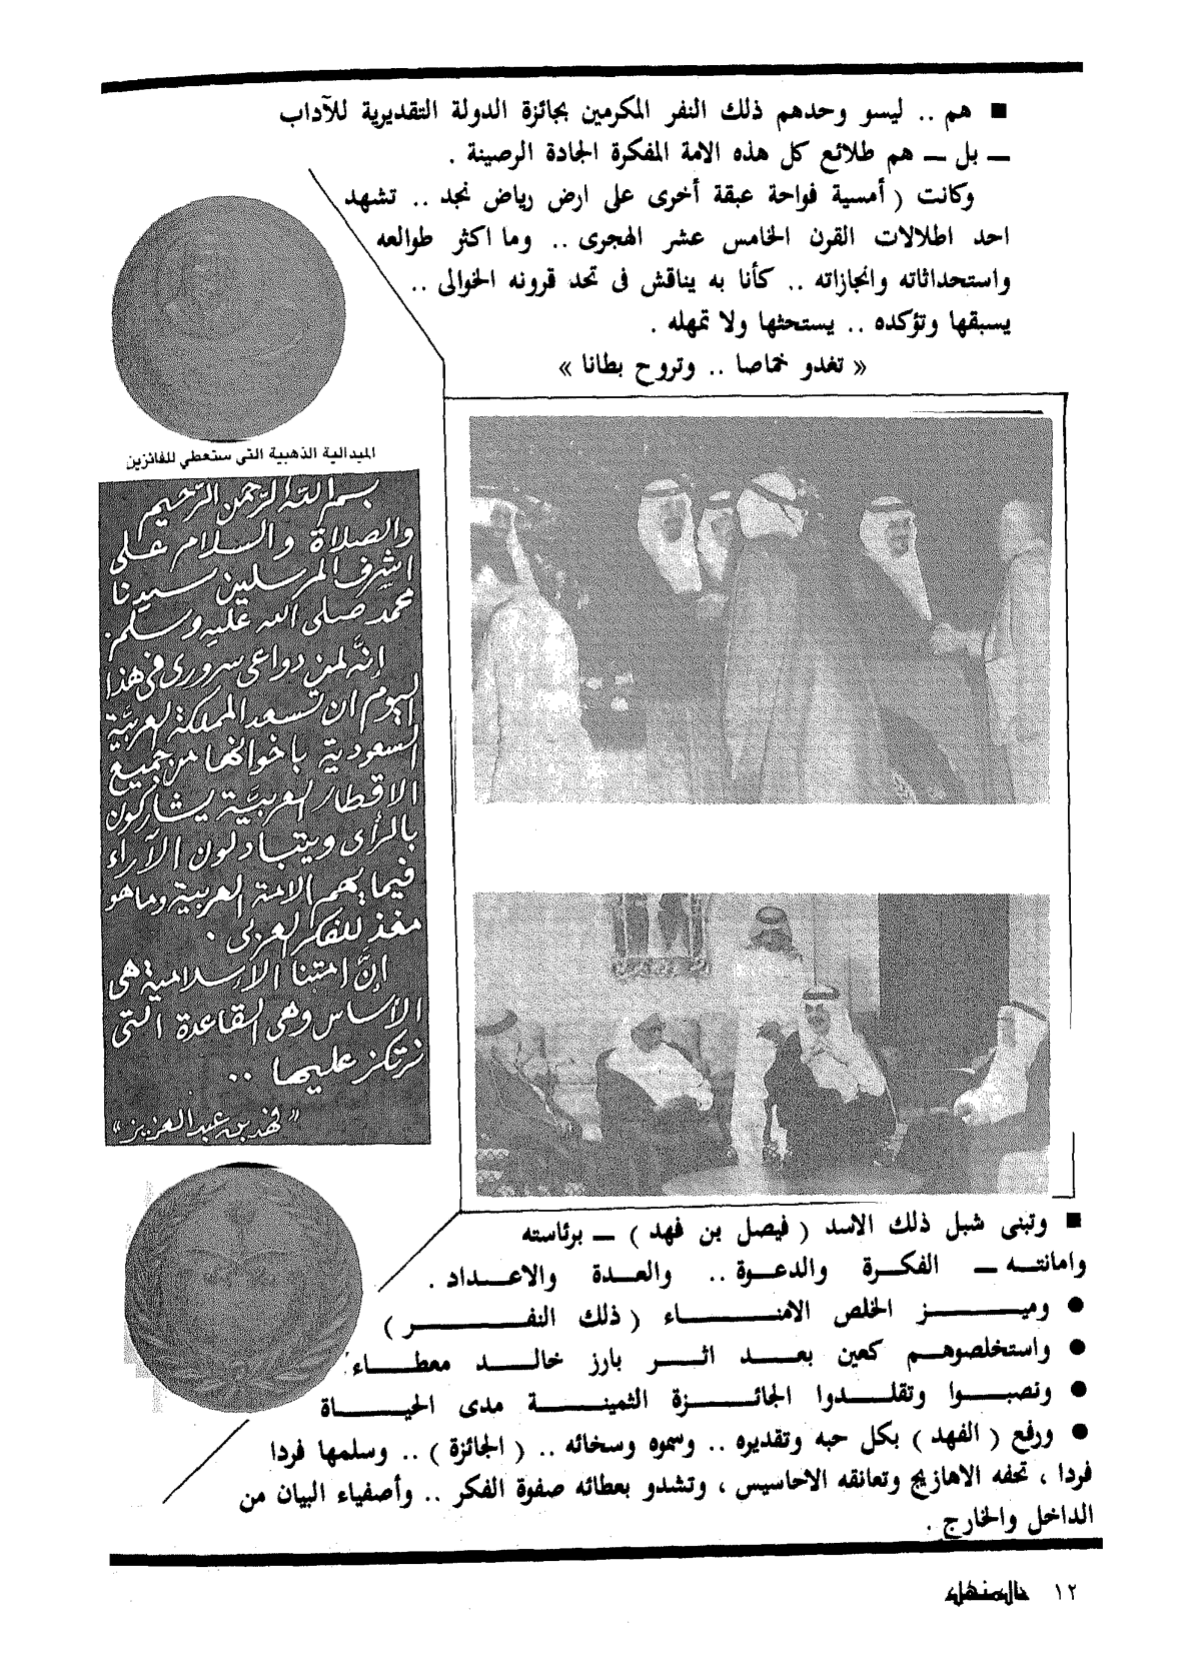 ■ هم .. ليسو وحدهم ذلك النفر المكرمين بجائزة الدولة التقديرية للآداب
ــ بل ــ هم طلائع كل هذه الامة المفكرة الجادة الرصينة .
وكانت ( أمسية فواحة عبقة أخرى على ارض رياض نجد .. تشهد
احد اطلالات القرن الخامس عشر الهجرى .. وما اكثر طوالعه
واستحداثاته وانجازاته .. كأنا به يناقش فى تحد قرونه الخوالى ..
يسبقها وتؤكده .. يستحثها ولا تمهله .
« تغدو خماصا .. وتروح بطانا »
الميدالية الذهبية التي ستعطي للفائزين
بسم الله الرحمن الرحيم
والصلاة والسلام على
اشرف المرسلين سيدنا
محمد صلى الله عليه وسلم.
إنه لمن دواعى سرورى فى هذا
اليوم ان تسعد المملكة العربية
السعودية باخوانها من جميع
الاقطار العربية يشاركون
بالرأى ويتبادلون الآراء
فيما يهم الامة العربية وماهو
مغذ للفكر العربى .
إن امتنا الإسلامية هى
الأساس وهى القاعدة التى
نرتكز عليها ..
« فهد بن عبد العزيز »
■ وتبنى شبل ذلك الاسد ( فيصل بن فهد ) ــ برئاسته
وامانتــه ــ الفكـرة والدعـوة .. والعـدة والاعـداد .
● وميــز الخلص الامنــاء ( ذلك النفــر )
● واستخلصوهـم كعين بعــد اثــر بارز خالــد معطــاء
● ونصبــوا وتقلــدوا الجائــزة الثمينــة مدى الحيــاة
● ورفع ( الفهد ) بكل حبه وتقديره .. وسموه وسخائه .. ( الجائزة ) .. وسلمها فردا
فردا ، تحفه الاهازيج وتعانقه الاحاسيس ، وتشدو بعطائه صفوة الفكر .. وأصفياء البيان من
الداخل والخارج .
١٢ المنهل